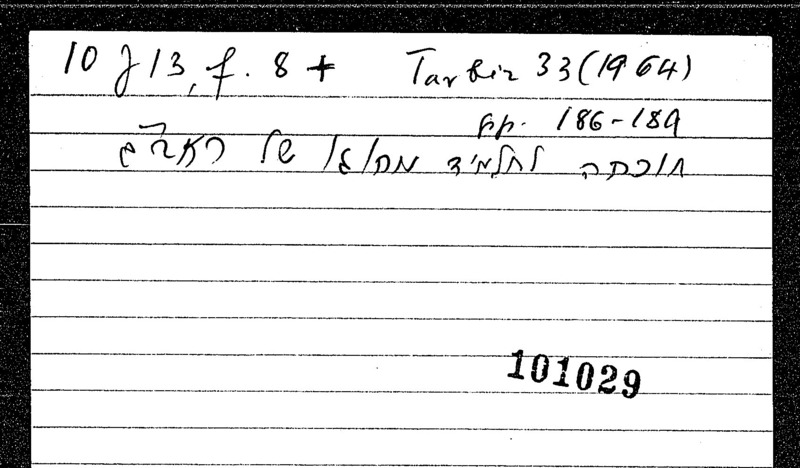 10 J 13, f. 8 + Tarbiz 33 (1964)
pp. 186-189
תוכחה לתלמיד של
101029